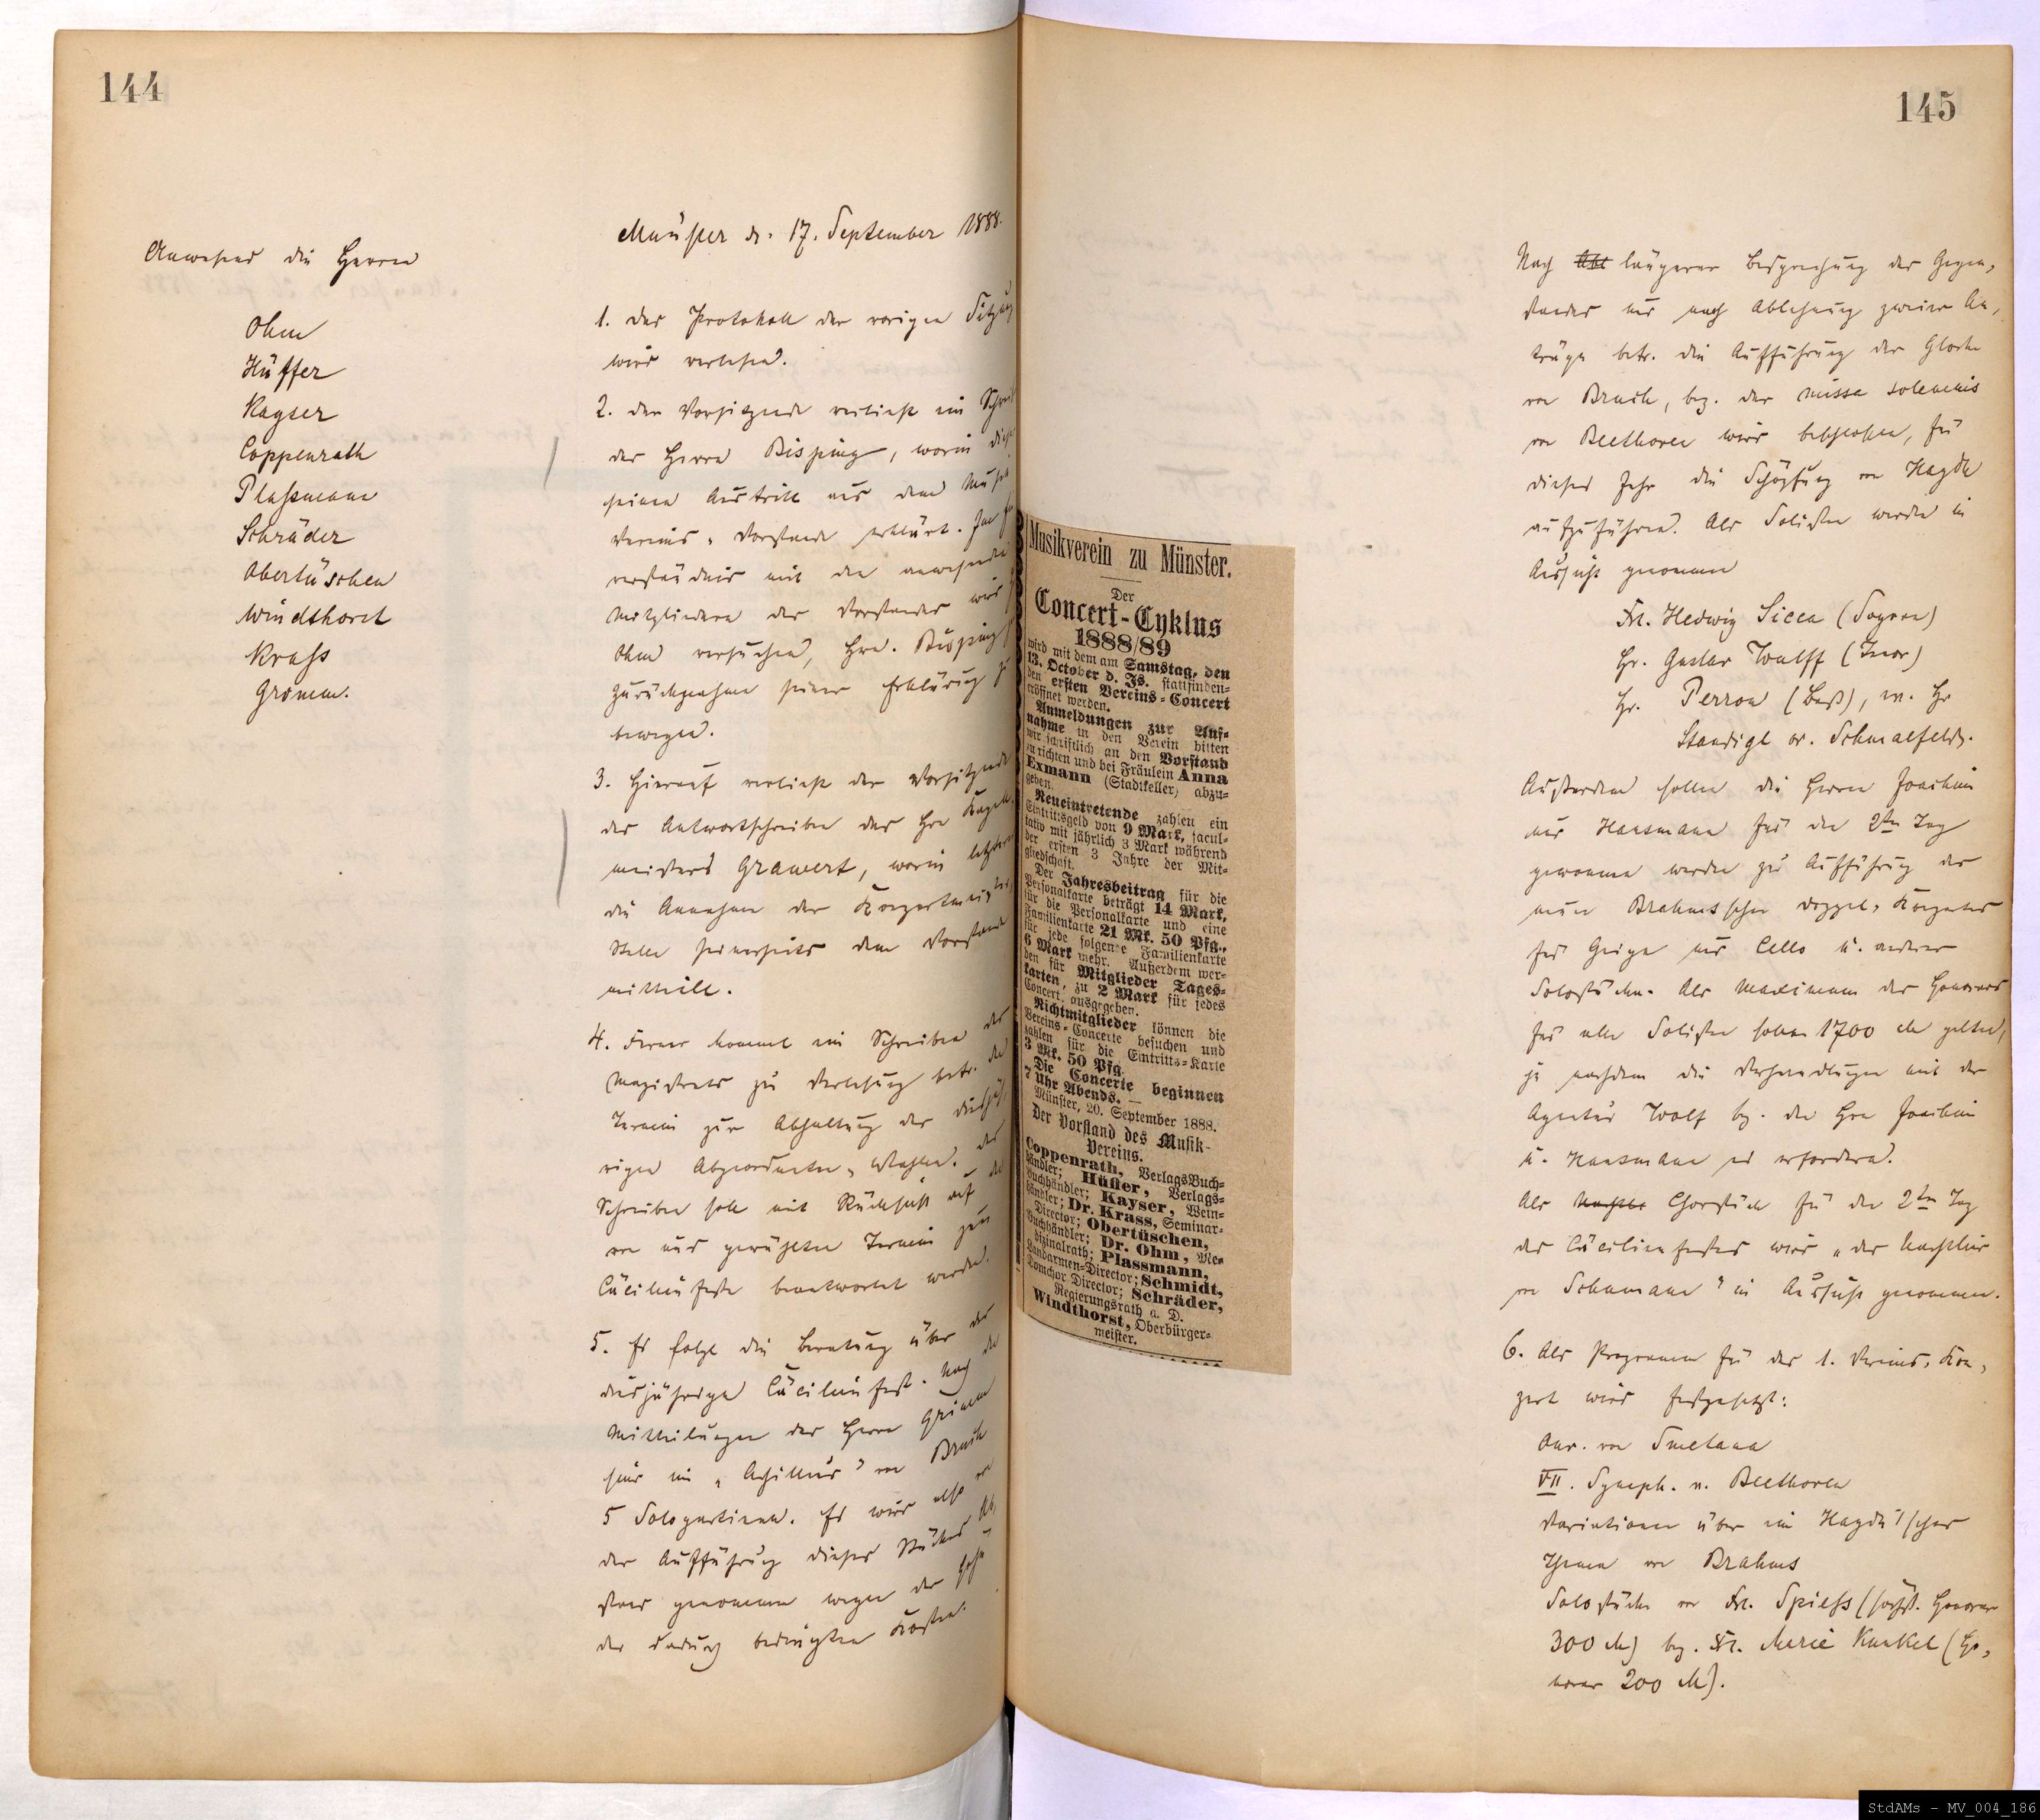 144
Anwesend die Herren
Ohm
Hüffer
Kayser
Coppenrath
Plaßmann
Schräder
Obertüschen
Windthorst
Kraß
Grimm.
Münster d. 17. September 1888.
1. Das Protokoll der vorigen Sitzung
wird verlesen.
2. Der Vorsitzende verliest ein
des Herrn Bisping, worin
seinen Austritt aus dem
Vereins-Vorstande erklärt. Im
verständnis mit den anwesenden
Mitgliedern des Vorstandes wird
Ohm versuchen, Hrn. Bisping
Zurücknahme seiner Erklärung
bewegen.
3. Hierauf verliest der Vorsitzende
das Antwortschreiben des Hrn
meisters Grawert, worin letzterer
die Annahme der Konzertmeister
Stelle seinerseits dem Vorstande
mittheilt.
4. Ferner kommt ein Schreiben des
Magistrats zu Verlesung betr. den
Termin zur Abhaltung der
rigen Abgeordneten-Wahlen. Das
Schreiben soll mit Rücksicht auf den
von uns gewählten Termin zum
Cäcilienfeste beantwortet werden.
5. Es folgt die Beratung über das
diesjährige Cäcilienfest. Nach den
Mittheilungen des Herrn Grimm
sind im „Achilleus" von Bruch
5 Solopartieen. Es wird also von
der Aufführung dieses Stückes Ab-
stand genommen wegen der
der dadurch bedingten Kosten.
Musikverein zu Münster.
Der
Concert-Cyklus
1888/89
wird mit dem am Samstag, den
13. October d. Js. stattfinden-
den ersten Vereins-Concert
eröffnet werden.
Anmeldungen zur Auf-
nahme in den Verein bitten
wir schriftlich an den Vorstand
zu richten und bei Fräulein Anna
Exmann (Stadtkeller) abzu-
geben.
Neueintretende zahlen ein
Eintrittsgeld von 9 Mark, facul-
tativ mit jährlich 3 Mark während
der ersten 3 Jahre der Mit-
gliedschaft.
Der Jahresbeitrag für die
Personalkarte beträgt 14 Mark,
für die Personalkarte und eine
Familienkarte 21 Mk. 50 Pfg.,
für jede folgende Familienkarte
6 Mark mehr. Außerdem wer-
den für Mitglieder Tages-
karten, zu 2 Mark für jedes
Concert, ausgegeben.
Nichtmitglieder können die
Vereins-Concerte besuchen und
zahlen für die Eintritts-Karte
3 Mk. 50 Pfg.
Die Concerte beginnen
7 Uhr Abends. —
Münster, 20. September 1888.
Der Vorstand des Musik-
Vereins.
Coppenrath, VerlagsBuch-
händler; Hüffer, Verlags-
Buchhändler; Kayser, Wein-
händler; Dr. Krass, Seminar-
Director; Obertüschen,
Buchhändler; Dr. Ohm, Me-
dizinalrath; Plassmann,
Landarmen-Director; Schmidt,
Domchor Director; Schräder,
Regierungsrath a. D.
Windthorst, Oberbürger-
meister.
145
Nach längerer Besprechung des Gegen-
standes und nach Ablehnung zweier An-
träge betr. die Aufführung der Glocke
von Bruch, bez. der missa solemnis
von Beethoven wird beschlossen, für
dieses Jahr die Schöpfung von Haydn
aufzuführen. Als Solisten werden in
Aussicht genommen
Frl. Hedwig Sicca (Sopran)
Hr. Gustav Wulff (Tenor)
Hr. Perron (Baß), ev. Hr
Staudigl od. Schmalfeld.
Außerdem sollen die Herren Joachim
und Hausmann für den 2ten Tag
gewonnen werden zur Aufführung des
neuen Brahms'schen Doppel-Konzertes
für Geige und Cello u. anderer
Solostücke. Als Maximum des Honorars
für alle Solisten sollen 1700 M gelten,
je nachdem die Verhandlungen mit der
Agentur Wolf bz. den Hrn Joachim
u. Hausmann es erfordern.
Als Chorstück für den 2ten Tag
des Cäcilienfestes wird „das Nachtlied
von Schumann" in Aussicht genommen.
6. Als Programm für das 1. Vereins-Kon-
zert wird festgesetzt:
Ouv. von Smetana
VII. Symph. v. Beethoven
Variationen über ein Haydn'sches
Thema von Brahms
Solostücke von Frl. Spieß (höchst. Honorar
300 M) bez. Frl. Marie Kunkel (Ho-
norar 200 M).
StdAMs - MV_004_186